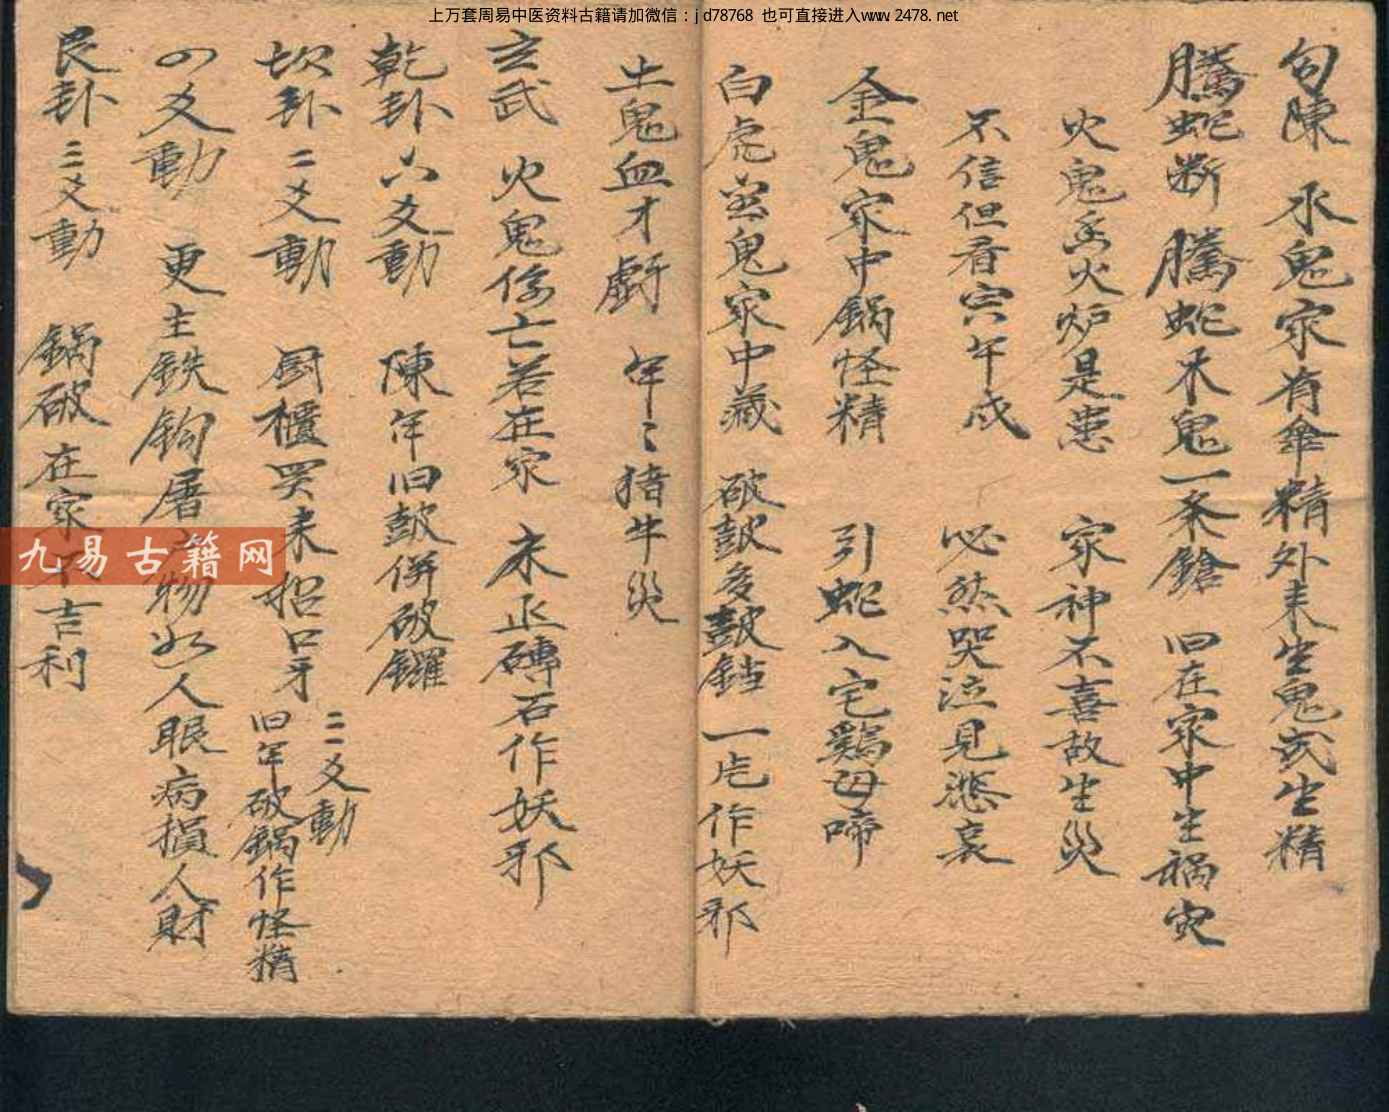 上万套周易中医资料古籍请加微信：jd78768 也可直接进入www.2478.net
句陳 水鬼家有傘精外来生鬼式生精
騰蛇断 騰蛇木鬼一条鎗 旧在家中生祸灾
火鬼 火炉是患 家神不喜故生災
不信但看寅午戌 必然哭泣見悲哀
金鬼家中鍋怪精 引蛇入宅鷄母啼
白虎 鬼家中藏 破鼓多鼓 一 作妖邪
土鬼血才 年〻猪牛災
玄武 火鬼係亡若在家 未 磚石作妖邪
乾卦六爻動 陳年旧鼓併破鑼
坎卦二爻動 厨櫃哭来招口牙
二爻動 旧年破鍋作怪精
四爻動 更主鉄鈎屠 物 人眼病損人財
艮卦三爻動 鍋破在家不吉利
九易古籍网